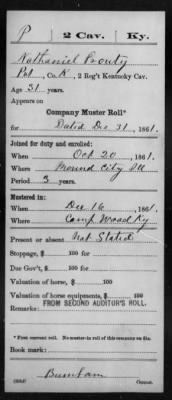 P | 2 Cav. | Ky.
Nathaniel Prouty
Pvt, Co. K, 2 Reg't Kentucky Cav.
Age 31 years.
Appears on
Company Muster Roll*
for Dated Dec 31, 1861.
Joined for duty and enrolled:
When Oct 20, 1861.
Where Mound City Ill
Period 3 years.
Mustered in:
When Dec 16, 1861.
Where Camp Wood Ky
Present or absent Not Stated
Stoppage, $ 100 for
Due Gov't, $ 100 for
Valuation of horse, $ 100
Valuation of horse equipments, $ 100
FROM SECOND AUDITOR'S ROLL.
Remarks:
* First current roll. No muster-in roll of this company on file.
Book mark:
Burnham
Copyist.